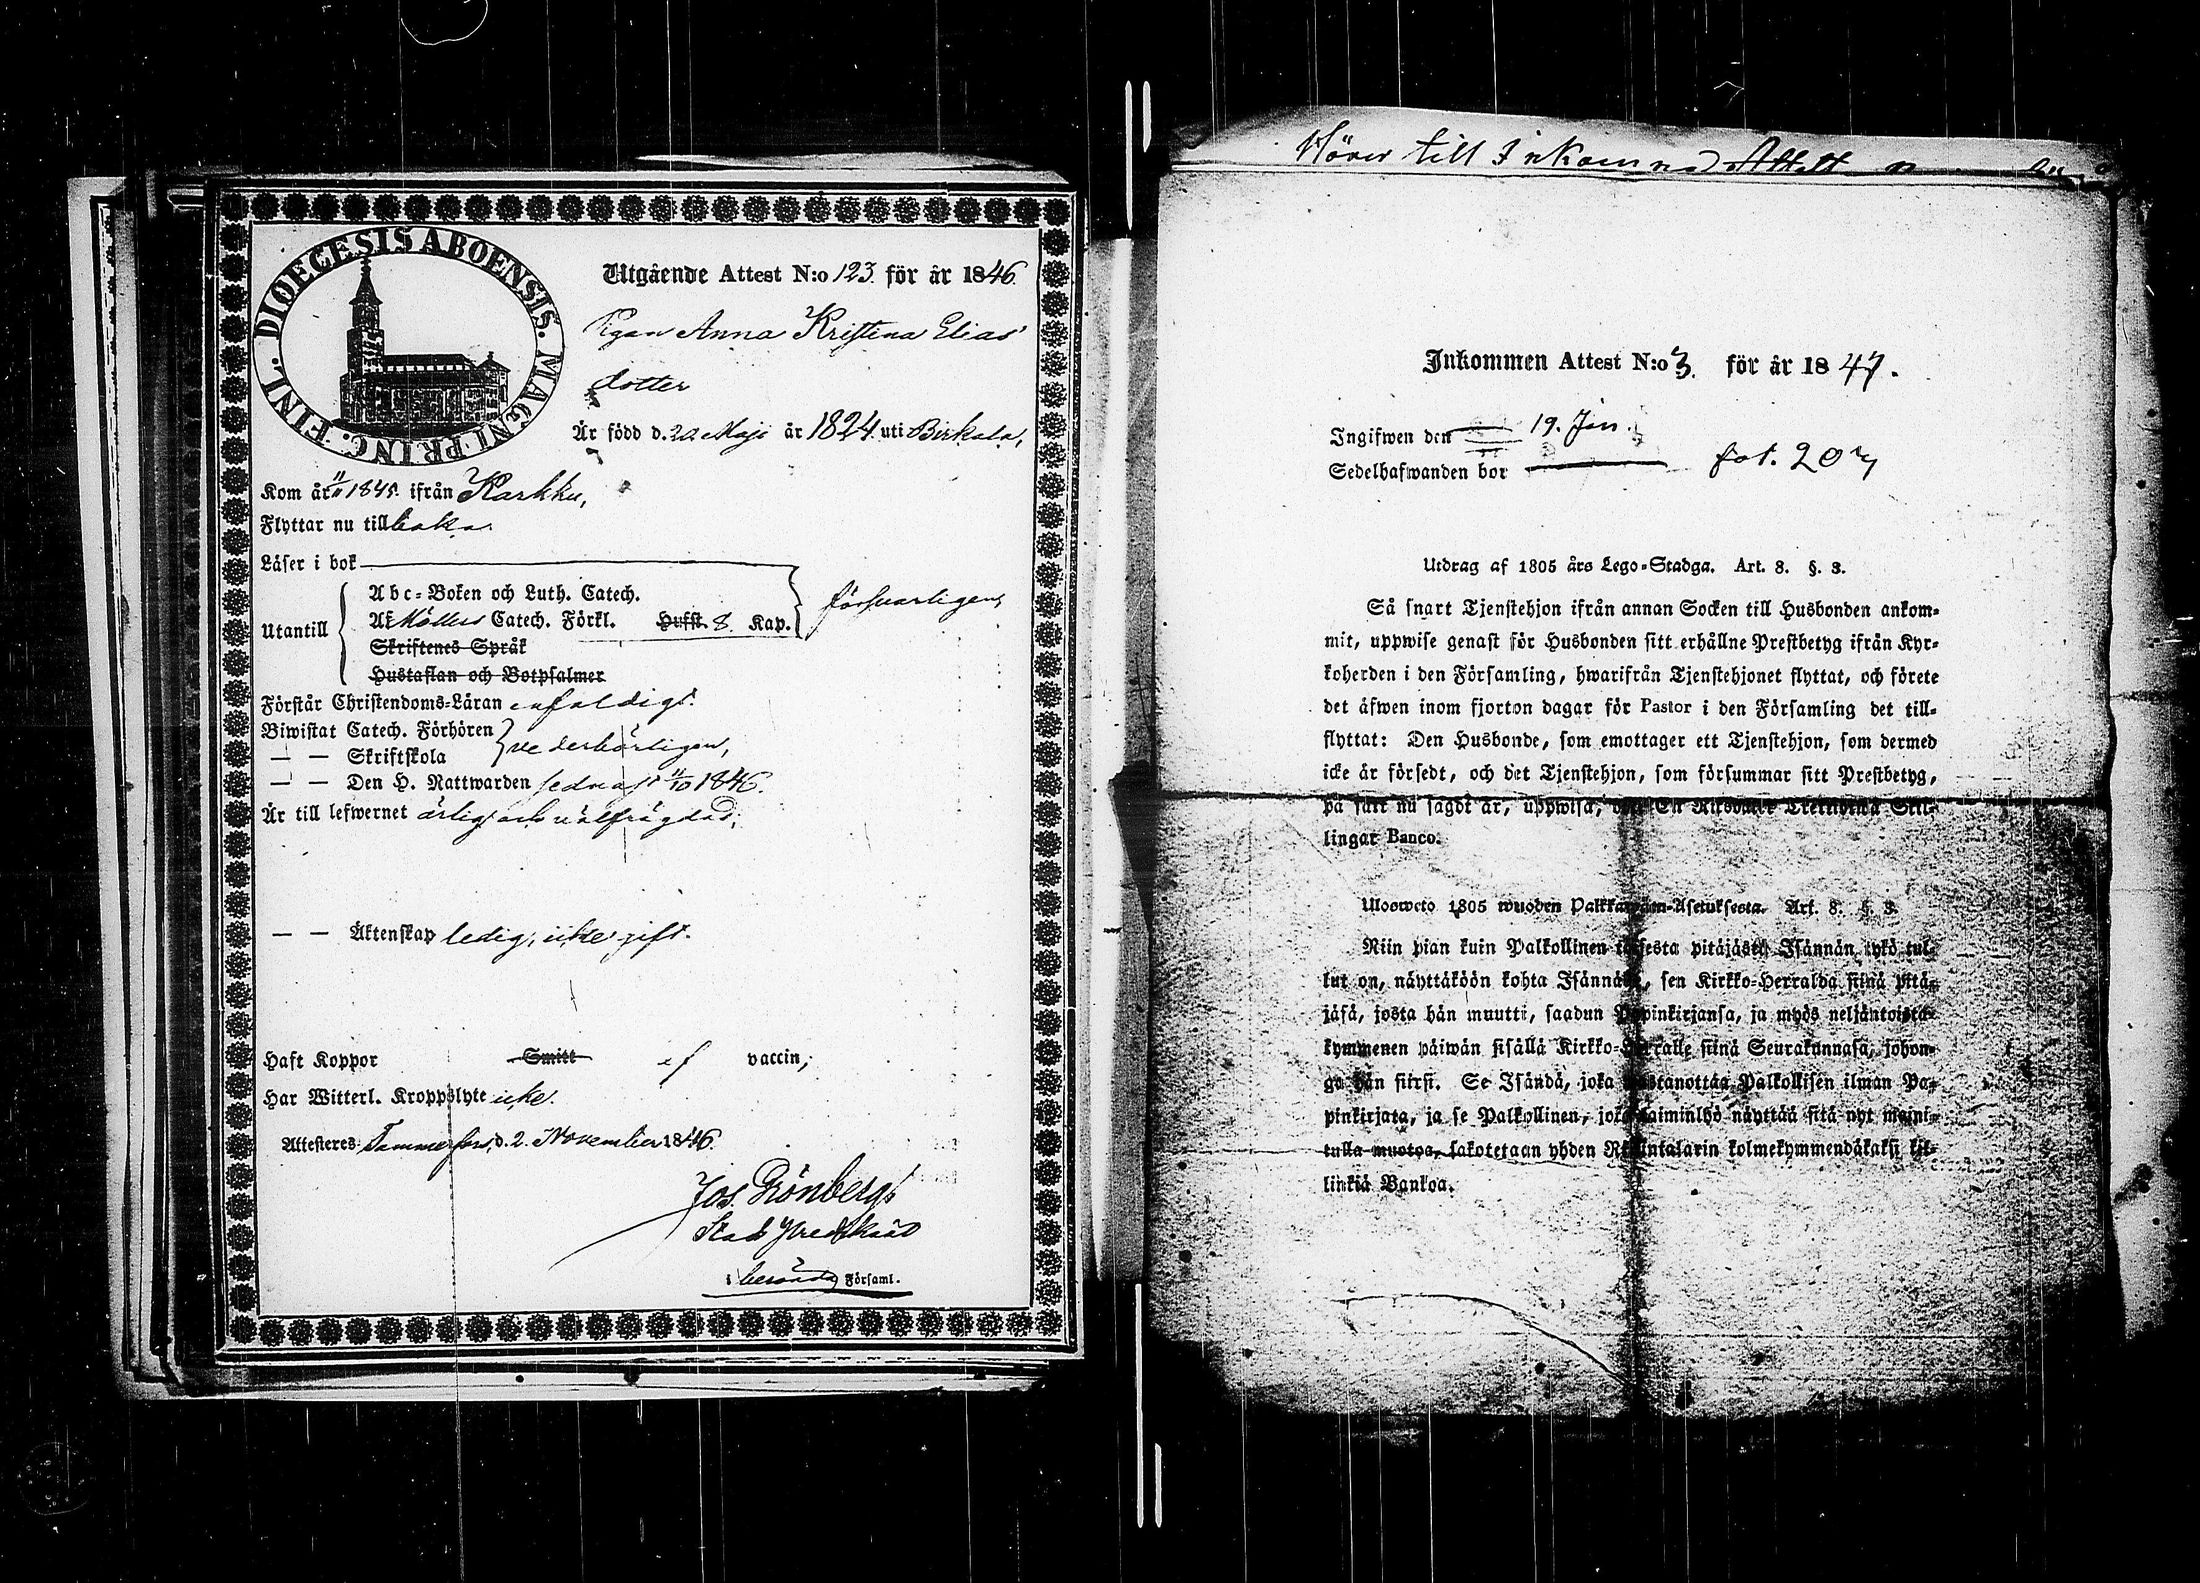 DIOECESIS ABOENSIS. MAGNI PRINC. FINL.
Utgående Attest N:o 123. för år 1846.
Pigan Anna Kristina Elias
dotter
Är född d. 20. Maji år 1824. uti Birkala,
Kom år 1845. ifrån Karkku,
Flyttar nu tillbaka.
Läser i bok
Utantill
Abc-Boken och Luth. Catech.
Af Möllers Catech. Förkl. Hufst. 8. Kap.
försvarligen,
Skriftenes Språk
Hustaflan och Botpsalmer
Förstår Christendoms-Läran enfaldigt.
Biwistat Catech. Förhören
— — Skriftskola
vederbörligen,
— — Den H. Nattwarden sednast 4/10 1846.
Är till lefwernet ärlig och välfrägdad,
— — Äktenskap ledig, icke gift.
Haft Koppor Smitt ef vaccin,
Har Witterl. Kroppslyte icke.
Attesteres Tammerfors, d. 2. November 1846.
Jos. Grönberg
i berörda Församl.
Hörer till Inkomna Attest
Inkommen Attest N:o 3. för år 1847.
Ingifwen den 19. Jan.
Sedelhafwanden bor fol. 207
Utdrag af 1805 års Lego-Stadga. Art. 8. §. 3.
Så snart Tjenstehjon ifrån annan Socken till Husbonden ankom-
mit, uppwise genast för Husbonden sitt erhållne Prestbetyg ifrån Kyr-
koherden i den Församling, hwarifrån Tjenstehjonet flyttat, och förete
det äfwen inom fjorton dagar för Pastor i den Församling det till-
flyttat: Den Husbonde, som emottager ett Tjenstehjon, som dermed
icke är försedt, och det Tjenstehjon, som försummar sitt Prestbetyg,
på sätt nu sagdt är, uppwisa, En Riksdaler Trettiotwå Skil-
lingar Banco.
Uloswето 1805 wuoden Palkkawäen-Asetuksesta. Art. 8. §. 3.
Niin pian kuin Palkollinen toisesta pitäjästä Isännän tykö tul-
lut on, näyttäköön kohta Isännälle, sen Kirkko-Herralda siinä pitä-
jäsä, josta hän muutti, saadun Papinkirjansa, ja myös neljäntoista-
kymmenen päiwän sisällä Kirkko-Herralle siinä Seurakunnasa, johon-
ga hän siirsi. Se Isändä, joka wastanottaa Palkollisen ilman Pa-
pinkirjata, ja se Palkollinen, joka laiminlyö näyttää sitä nyt maini-
tulla muotoa, sakotetaan yhden Riksintalarin kolmekymmendäkaksi kil-
linkiä Bankoa.